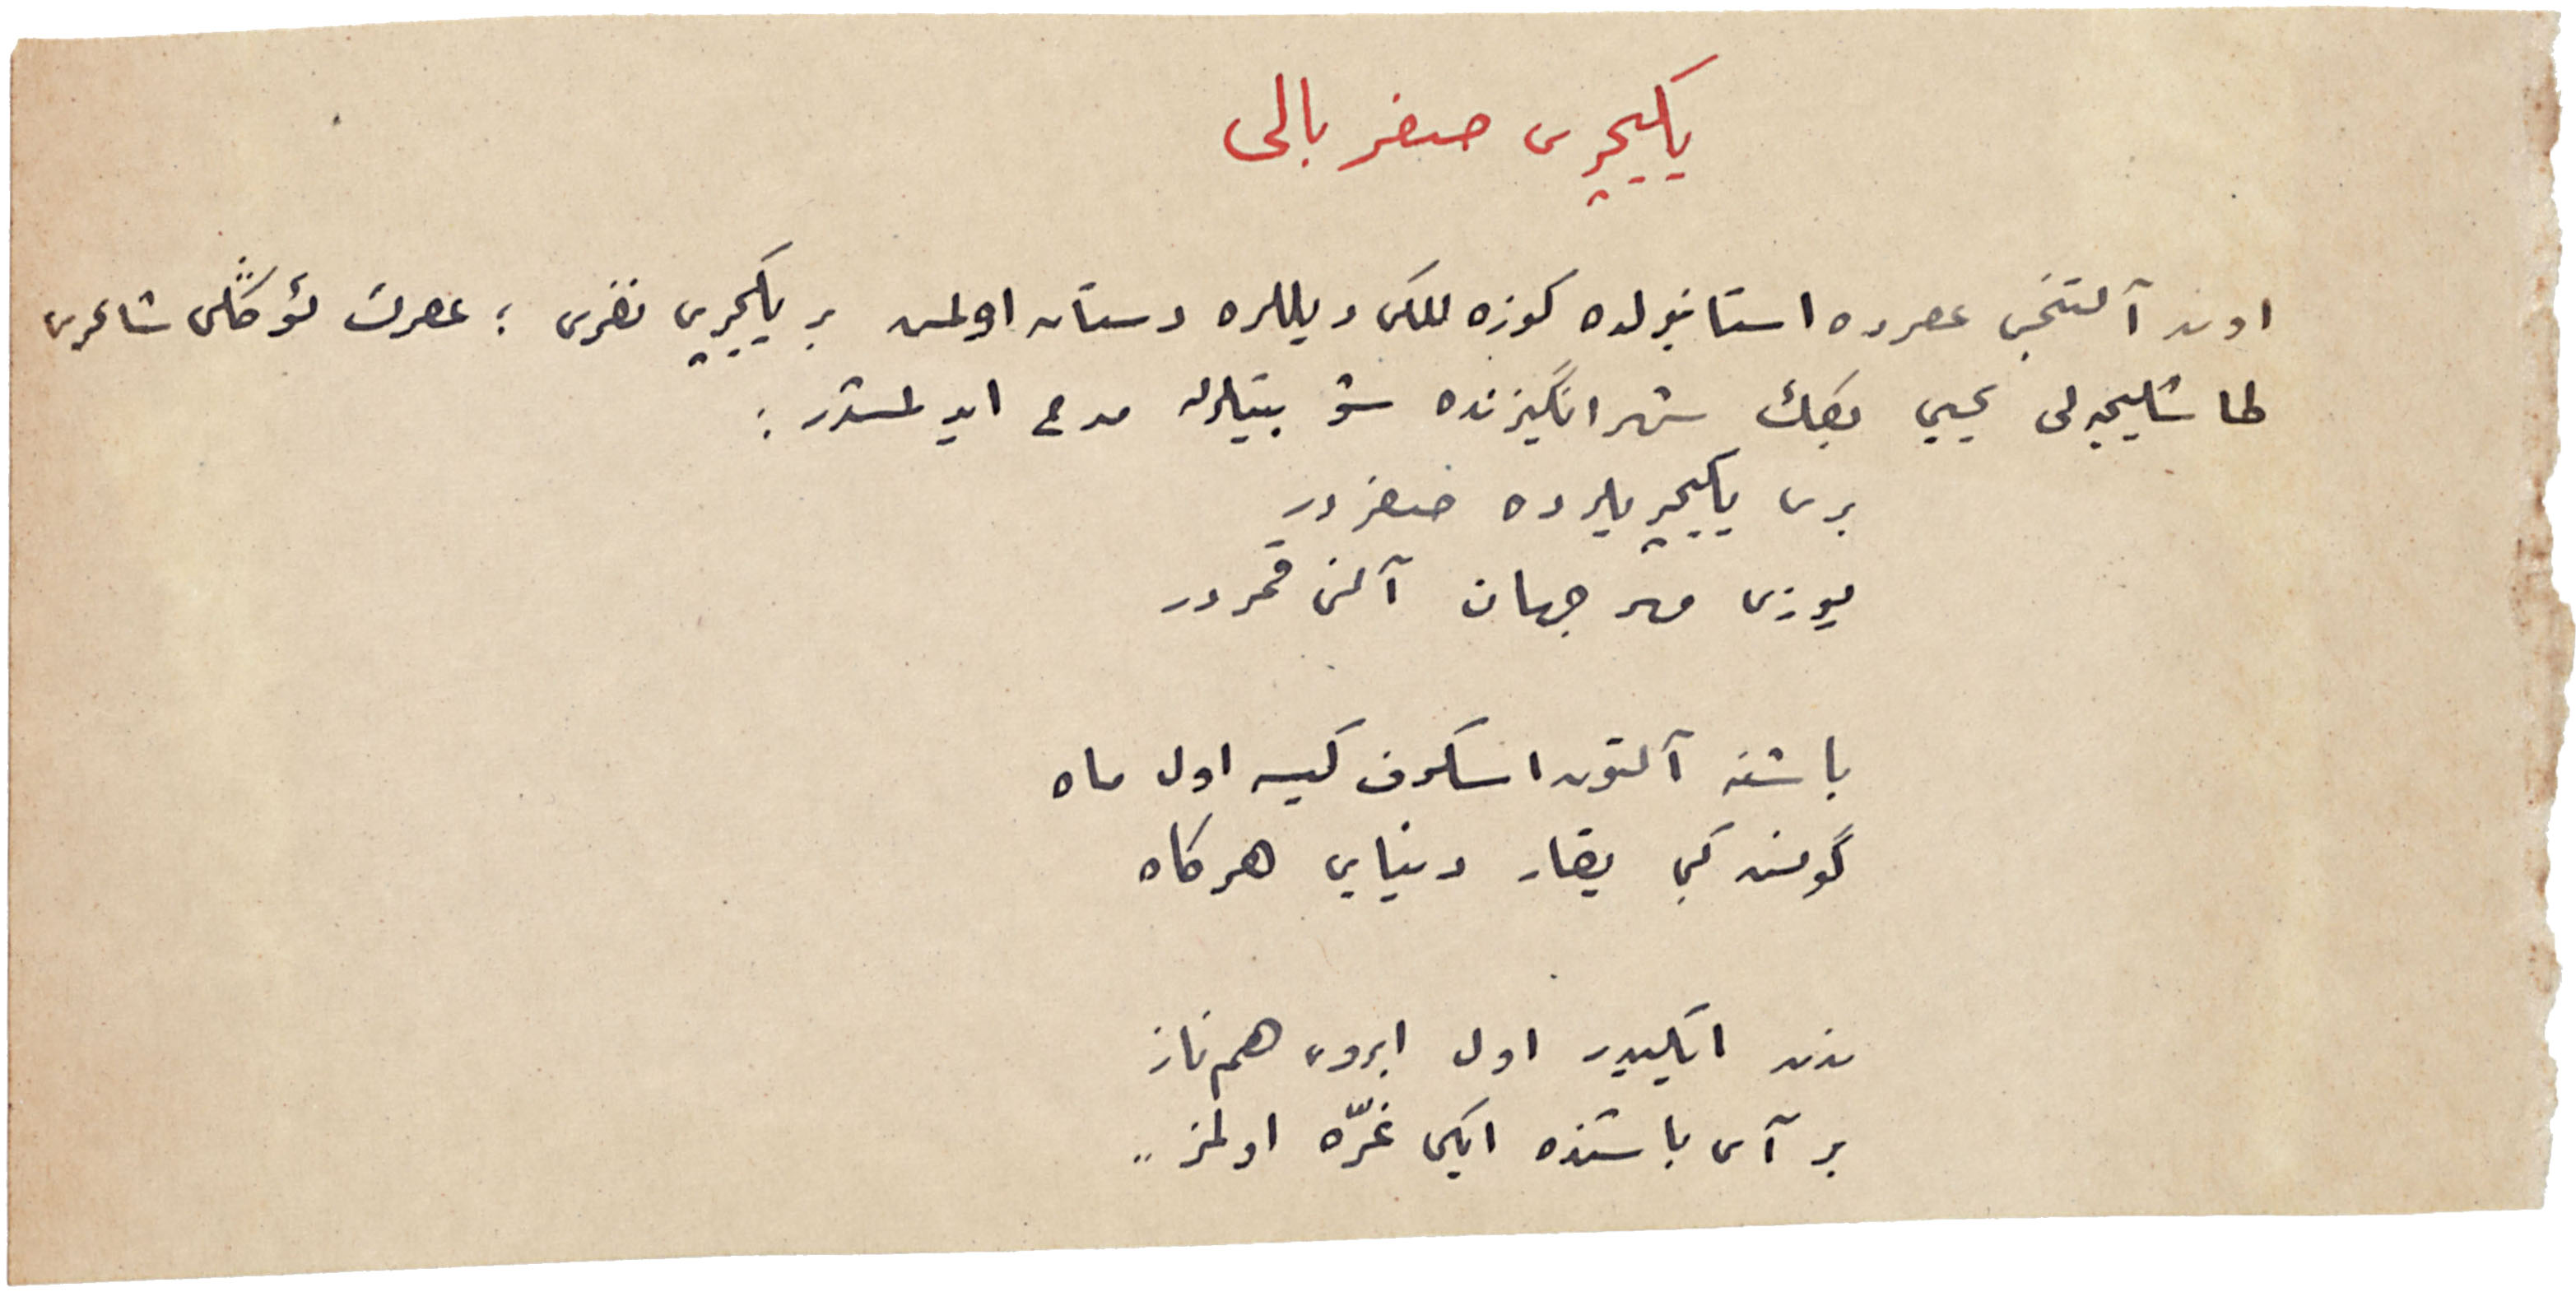 یكیچری صفر بالی
اون آلتنجی عصرده استانبولده كوزه للكی دیللره دستان اولمش بر یكیچری نفری ؛ عصرك شاعری
طاشلیجه لی یحیی بك شهر انگیزنده شو بیتلرله مدح ایدلمشدر :
بری یكیچریلرده صفردر
یوزی مهر جهان آلنی قمردر
باشنه آلتون اسكوف كیسه اول ماه
گونش كبی یقار دنیایی هر كاه
ندن ایكیدر اول ابروی هم ناز
بر آی باشنده ایكی غرّه اولمز ..